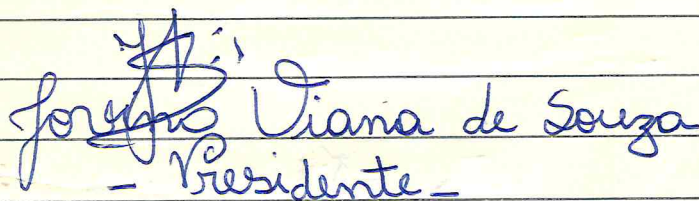 Jovino Viana de Souza
- Presidente -